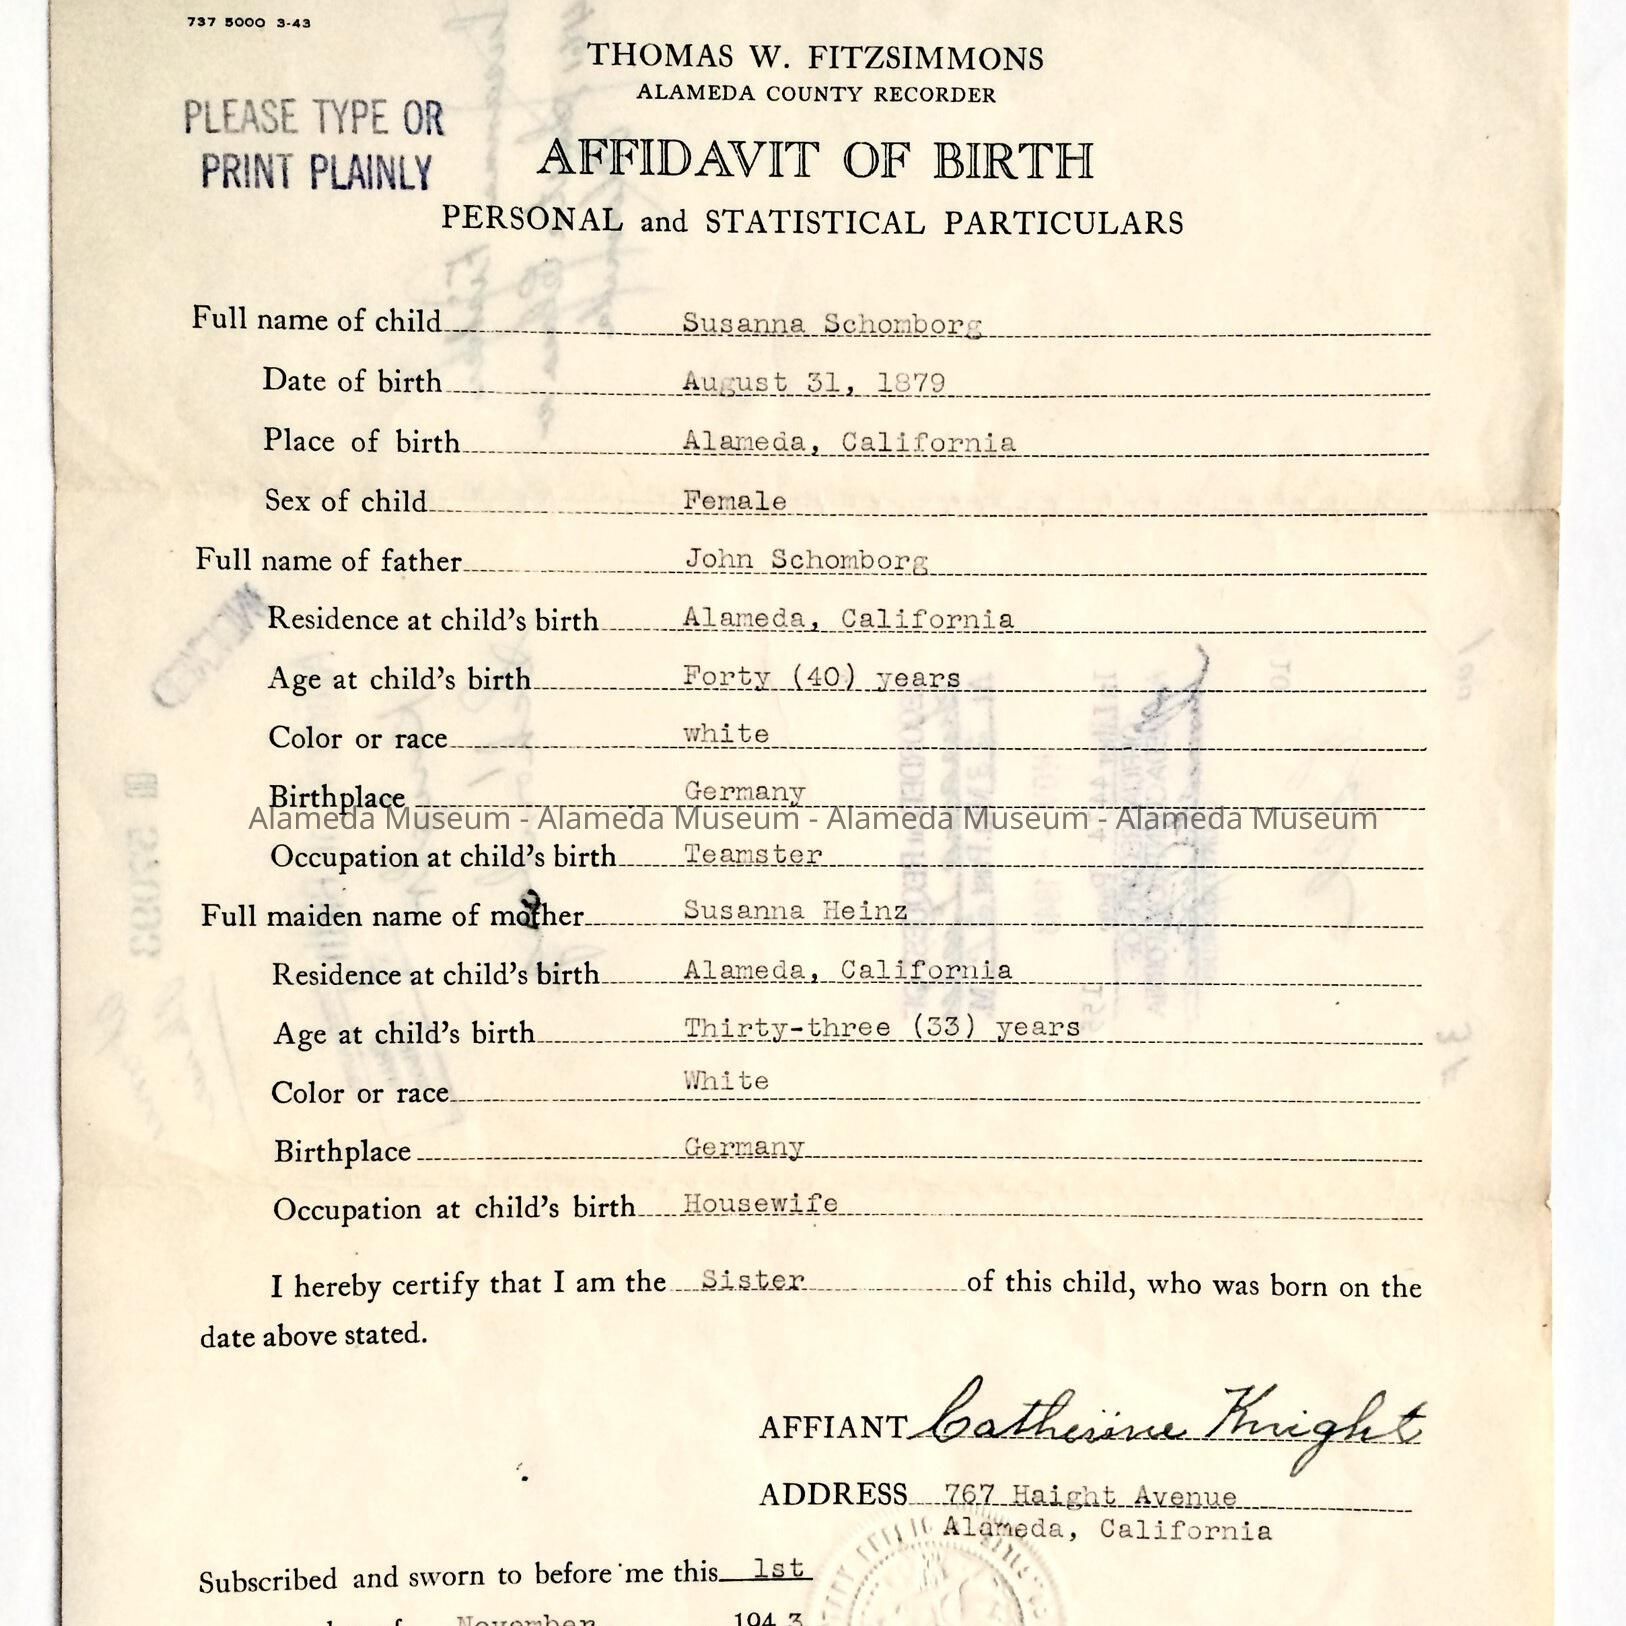 737 5000 3-43
THOMAS W. FITZSIMMONS
ALAMEDA COUNTY RECORDER
PLEASE TYPE OR
PRINT PLAINLY
AFFIDAVIT OF BIRTH
PERSONAL and STATISTICAL PARTICULARS
Full name of child Susanna Schomborg
Date of birth August 31, 1879
Place of birth Alameda, California
Sex of child Female
Full name of father John Schomborg
Residence at child's birth Alameda, California
Age at child's birth Forty (40) years
Color or race white
Birthplace Germany
Alameda Museum - Alameda Museum - Alameda Museum - Alameda Museum
Occupation at child's birth Teamster
Full maiden name of mother Susanna Heinz
Residence at child's birth Alameda, California
Age at child's birth Thirty-three (33) years
Color or race White
Birthplace Germany
Occupation at child's birth Housewife
I hereby certify that I am the Sister of this child, who was born on the
date above stated.
AFFIANT Catherine Knight
ADDRESS 767 Haight Avenue
Alameda, California
Subscribed and sworn to before me this 1st
November 1943